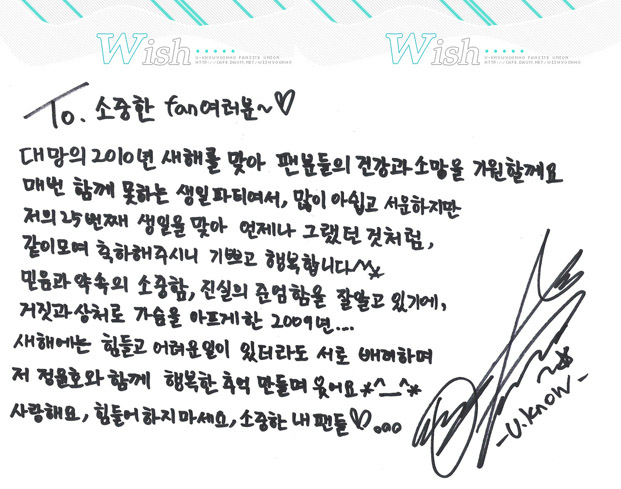 Wish
U-KNOWYUNHO FANSITE UNION
HTTP://CAFE.DAUM.NET/WISHYUNHO
Wish
U-KNOWYUNHO FANSITE UNION
HTTP://CAFE.DAUM.NET/WISHYUNHO
To. 소중한 fan여러분~♡
대망의 2010년 새해를 맞아 팬분들의 건강과 소망을 기원할께요
매번 함께 못하는 생일파티여서, 많이 아쉽고 서운하지만
저의 25번째 생일을 맞아 언제나 그랬던 것처럼,
같이모여 축하해주시니 기쁘고 행복합니다^^*
믿음과 약속의 소중함, 진실의 준엄함을 잘알고 있기에,
거짓과 상처로 가슴을 아프게한 2009년....
새해에는 힘들고 어려운일이 있더라도 서로 배려하며
저 정윤호와 함께 행복한 추억 만들며 웃어요*^__^*
사랑해요, 힘들어하지마세요, 소중한 내 팬들♡.ooo
-U.Know-